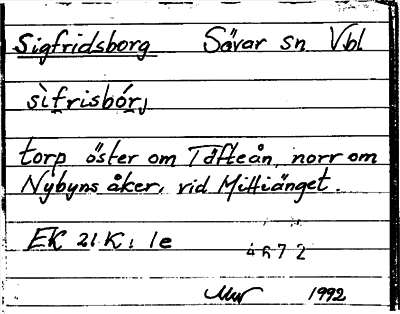 Sigfridsborg Sävar sn Vbl
sìfrisbórj
torp öster om Täfteån, norr om
Nybyns åker, vid Mittiänget.
EK 21 K: 1e
4672
1992